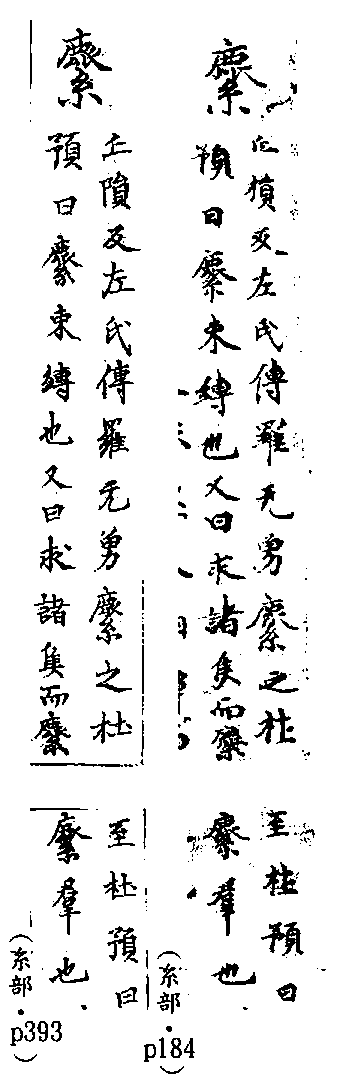 䌴
丘隕反左氏傳羅无勇䌴之杜
預曰䌴束縛也又曰求諸侯而䌴
至杜預曰
䌴羣也
（糸部・p184）
䌴
丘隕反左氏傳羅无勇䌴之杜
預曰䌴束縛也又曰求諸侯而䌴
至杜預曰
䌴羣也
（糸部・p393）